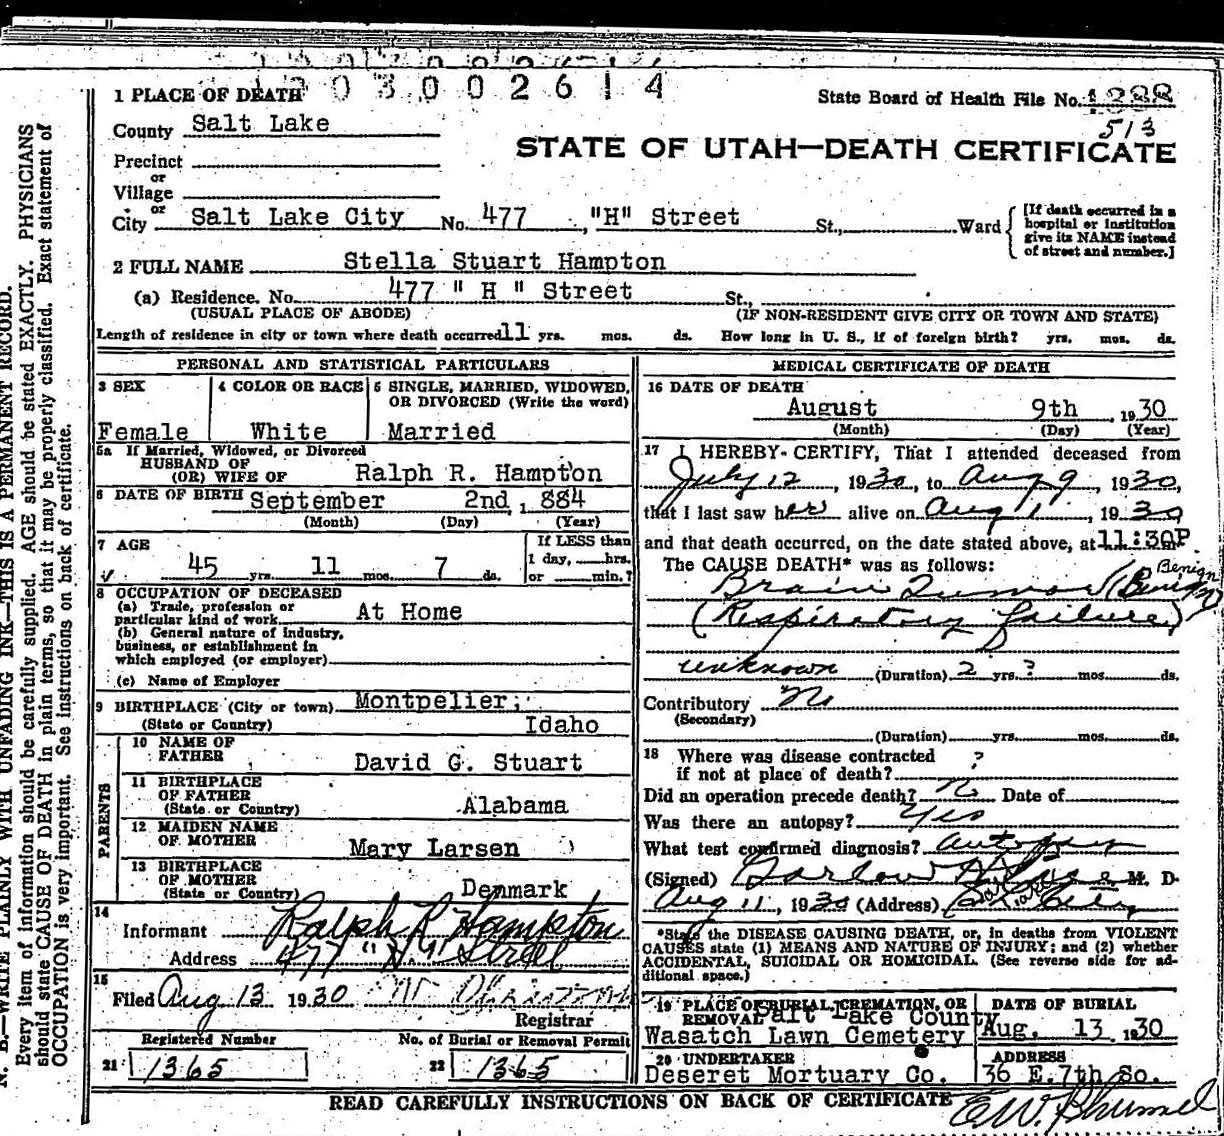 N. B.—WRITE PLAINLY WITH UNFADING INK—THIS IS A PERMANENT RECORD.
Every item of information should be carefully supplied. AGE should be stated EXACTLY. PHYSICIANS
should state CAUSE OF DEATH in plain terms, so that it may be properly classified. Exact statement of
OCCUPATION is very important. See instructions on back of certificate.
3 0 0 2 6 1 4
1 PLACE OF DEATH
State Board of Health File No. 1388
513
County Salt Lake
STATE OF UTAH—DEATH CERTIFICATE
Precinct
or
Village
or
City Salt Lake City No. 477 , "H" Street St., Ward
[If death occurred in a
hospital or institution
give its NAME instead
of street and number.]
2 FULL NAME Stella Stuart Hampton
(a) Residence. No. 477 " H " Street St.,
(USUAL PLACE OF ABODE) (IF NON-RESIDENT GIVE CITY OR TOWN AND STATE)
Length of residence in city or town where death occurred 11 yrs. mos. ds. How long in U. S., if of foreign birth? yrs. mos. ds.
PERSONAL AND STATISTICAL PARTICULARS
3 SEX
Female
4 COLOR OR RACE
White
5 SINGLE, MARRIED, WIDOWED,
OR DIVORCED (Write the word)
Married
5a If Married, Widowed, or Divorced
HUSBAND OF
(OR) WIFE OF Ralph R. Hampton
6 DATE OF BIRTH September 2nd, 1884
(Month) (Day) (Year)
7 AGE
45 yrs. 11 mos. 7 ds.
If LESS than
1 day, hrs.
or min.?
8 OCCUPATION OF DECEASED
(a) Trade, profession or
particular kind of work At Home
(b) General nature of industry,
business, or establishment in
which employed (or employer)
(c) Name of Employer
9 BIRTHPLACE (City or town) Montpelier,
(State or Country) Idaho
PARENTS
10 NAME OF
FATHER David G. Stuart
11 BIRTHPLACE
OF FATHER
(State or Country) Alabama
12 MAIDEN NAME
OF MOTHER Mary Larsen
13 BIRTHPLACE
OF MOTHER
(State or Country) Denmark
14
Informant Ralph R Hampton
Address 477 "H" Street
15
Filed Aug 13 1930
Registrar
Registered Number
21 1365
No. of Burial or Removal Permit
22 1365
MEDICAL CERTIFICATE OF DEATH
16 DATE OF DEATH
August 9th , 1930
(Month) (Day) (Year)
17 I HEREBY CERTIFY, That I attended deceased from
July 12, 1930, to Aug 9, 1930,
that I last saw her alive on Aug 1, 1930
and that death occurred, on the date stated above, at 11:30P m.
The CAUSE DEATH* was as follows:
Benign
Brain Tumor (Benign)
(Respiratory failure)
unknown (Duration) 2 yrs.? mos. ds.
Contributory No
(Secondary)
(Duration) yrs. mos. ds.
18 Where was disease contracted
if not at place of death? ?
Did an operation precede death? No Date of
Was there an autopsy? Yes
What test confirmed diagnosis? autopsy
(Signed) M. D.
Aug 11, 1930 (Address)
*State the DISEASE CAUSING DEATH, or, in deaths from VIOLENT
CAUSES state (1) MEANS AND NATURE OF INJURY; and (2) whether
ACCIDENTAL, SUICIDAL OR HOMICIDAL. (See reverse side for ad-
ditional space.)
19 PLACE OF BURIAL, CREMATION, OR
REMOVAL Salt Lake County
Wasatch Lawn Cemetery
DATE OF BURIAL
Aug. 13, 1930
20 UNDERTAKER
Deseret Mortuary Co.
ADDRESS
36 E. 7th So.
READ CAREFULLY INSTRUCTIONS ON BACK OF CERTIFICATE